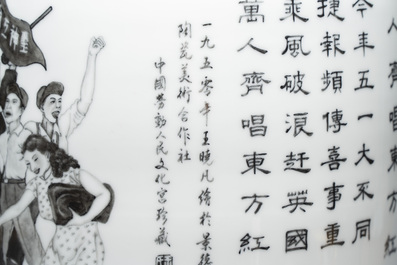 人齊唱東方紅
今年五一大不同
捷報頻傳喜事重
乘風破浪趕英國
萬人齊唱東方紅
一九五零年王曉凡繪於景德
陶瓷美術合作社
中國勞動人民文化宮珍藏